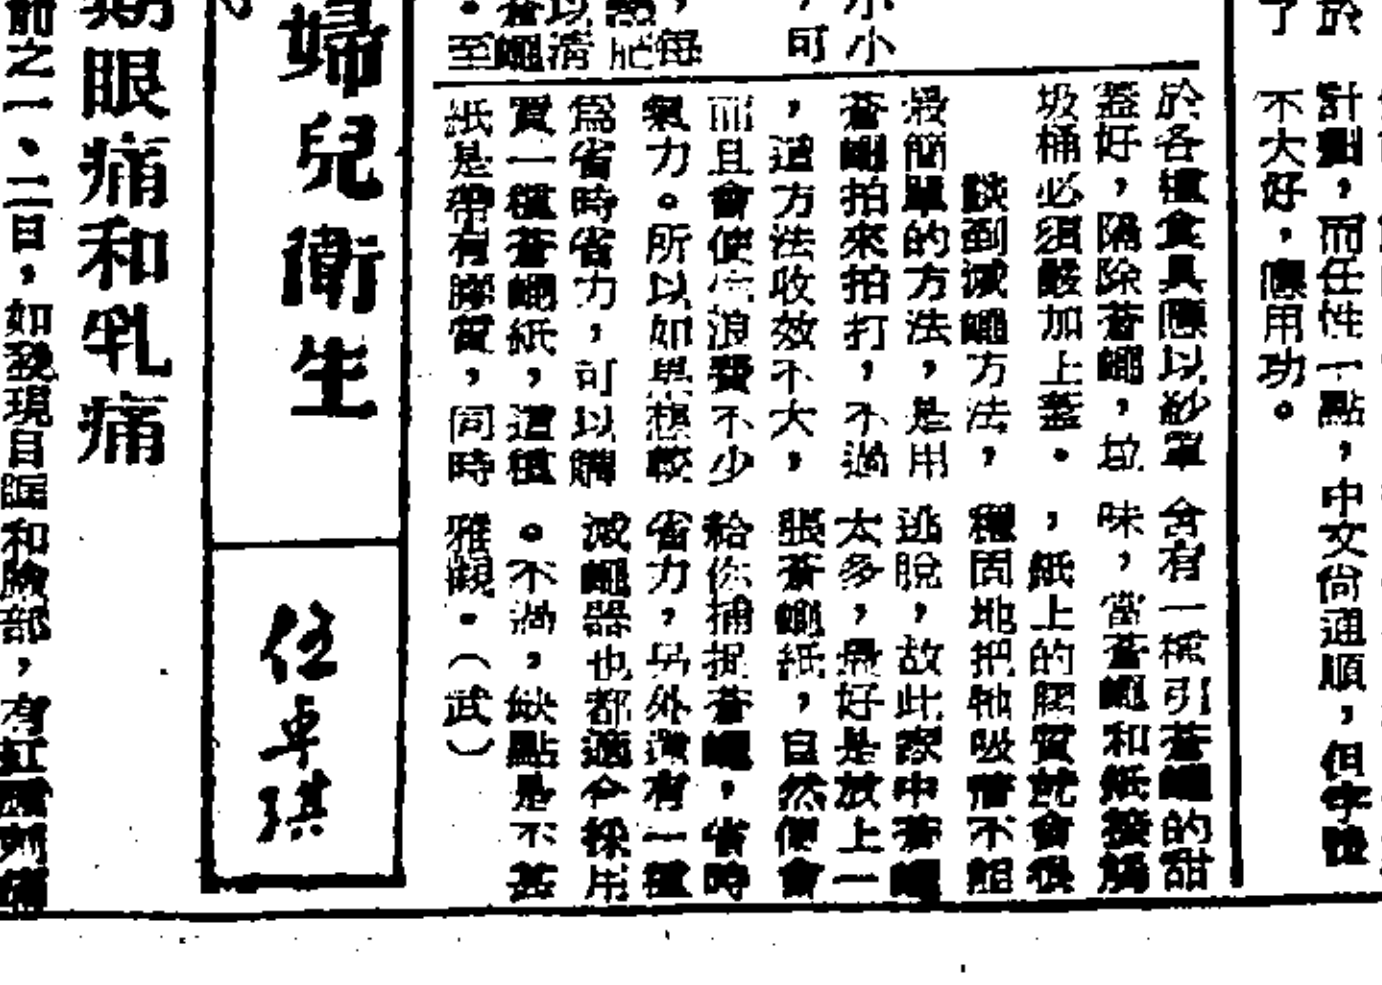 於
計劃，而任性一點，中文尚通順，但字體
了
不大好，應用功。
小小
，可
，每
以清
蒼蠅
。至
於各種食具應以紗罩
蓋好，隔除蒼蠅，垃
圾桶必須嚴加上蓋。
談到滅蠅方法，
最簡單的方法，是用
蒼蠅拍來拍打，不過
，這方法收效不大，
而且會使你浪費不少
氣力。所以如果想較
為省時省力，可以購
買一種蒼蠅紙，這種
紙是帶有膠質，同時
含有一種引蒼蠅的甜
味，當蒼蠅和紙接觸
，紙上的膠質就會很
穩固地把牠吸着不能
逃脫，故此家中蒼蠅
太多，最好是放上一
張蒼蠅紙，自然便會
給你捕捉蒼蠅，省時
省力，另外還有一種
滅蠅器也都適合採用
。不過，缺點是不甚
雅觀。（武）
婦兒衛生
任卓琪
期眼痛和乳痛
前之一、二日，如發現自眶和臉部，有紅